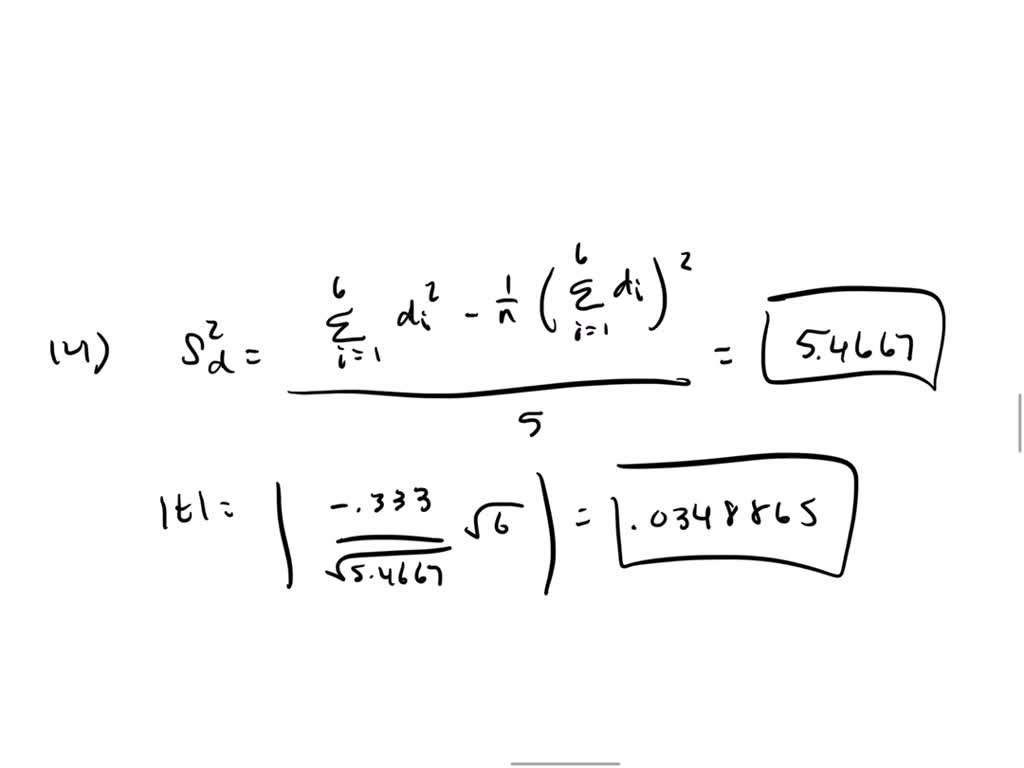 14) S_d^2 = \frac{\sum_{i=1}^{6} d_i^2 - \frac{1}{n} \left( \sum_{i=1}^{6} d_i \right)^2}{5} = 5.4667
|t| = \left| \frac{-.333}{\sqrt{5.4667}} \sqrt{6} \right| = .0348865